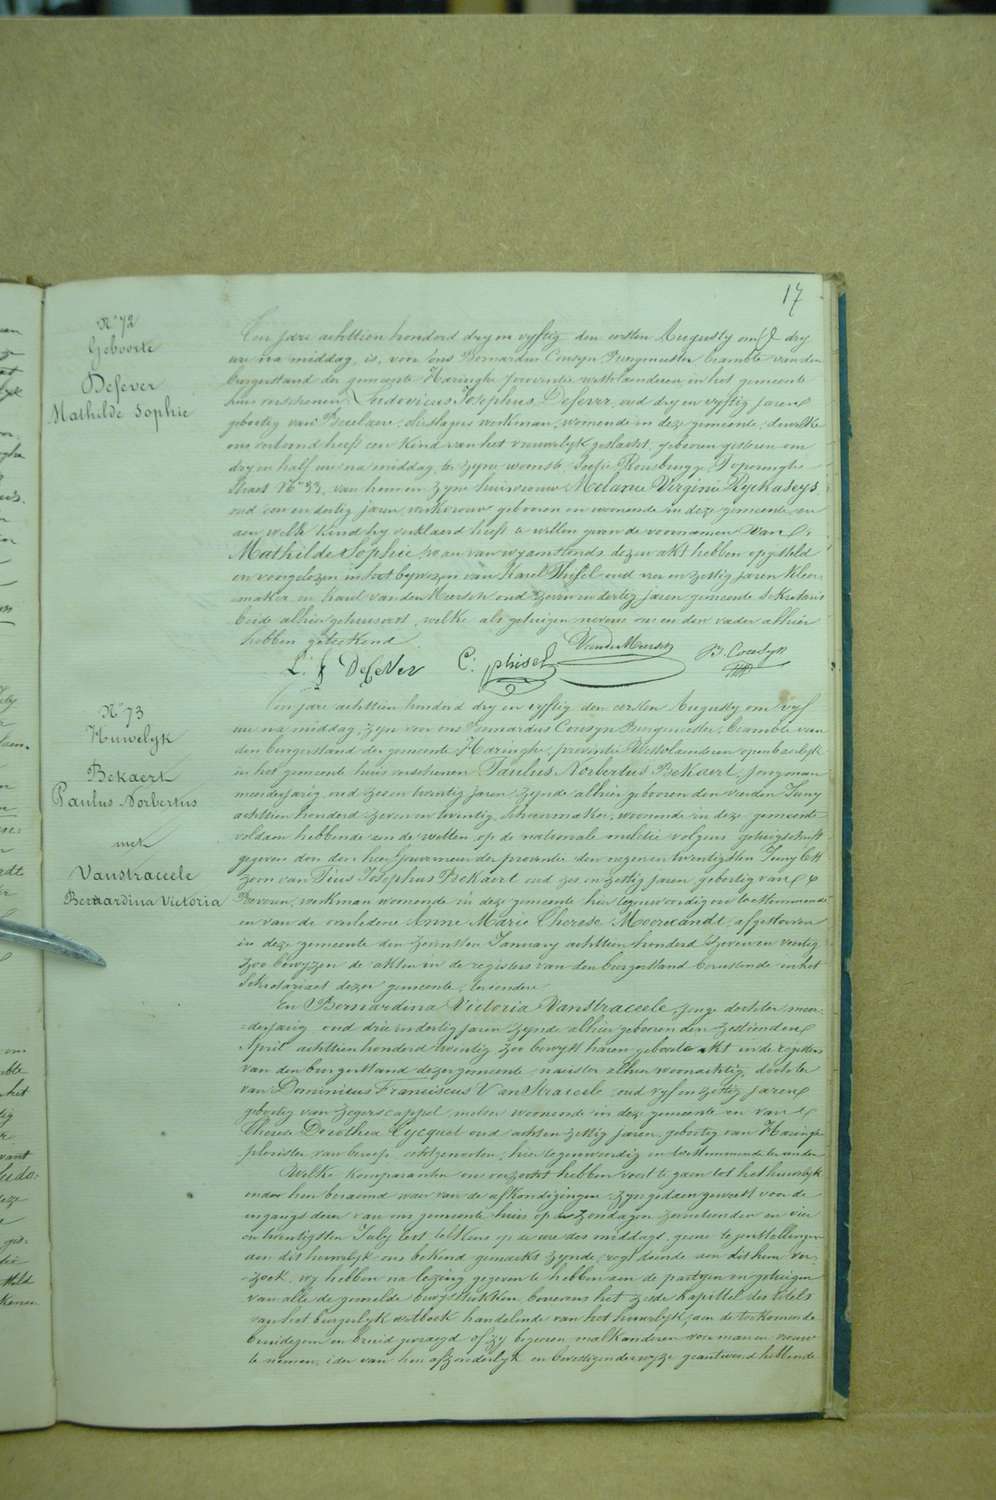 17
N° 72
Geboorte
Defever
Mathilde Sophie
Ten jare achttien honderd dry en vyftig den eersten Augusty om dry
ure na middag, is, voor ons Bernardus Cousyn Burgmeester beambte van den
burgerstand der gemeente Haringhe provintie westvlanderen in het gemeente
huis verschenen Ludovicus Josephus Defever, oud dry en vyftig jaren
geboortig van Becelaere, werkman, wonende in deze gemeente, dewelke
ons vertoond heeft een kind van het vrouwelyk geslacht, geboren gisteren om
dry en half ure na middag, te zyne woonste Poperinghe
straet N° 33, van hem en zyne huisvrouw Melanie Virginie Ryckaseys,
oud een en dertig jaren werkvrouw geboren en wonende in deze gemeente, en
aen welk kind hy verklaerd heeft te willen geven de voornamen van
Mathilde Sophie, waer van wy aenstonds dezen akt hebben opgesteld
en voorgelezen in het bywezen van Karel Thisel oud vier en zestig jaren kleer
maker, en Karel vander Meersch oud zeven en dertig jaren gemeente sekretaris
beide alhier gehuisvest, welke als getuigen nevens ons en den vader alhier
hebben geteekend
L. J Defever C: phisel Vander Meersch B. Cousyn
N° 73
Huwelyk
Bekaert
Paulus Norbertus
met
Vanstraceele
Bernardina Victoria
Ten jare achttien honderd dry en vyftig den eersten Augusty om vyf
ure na middag, zyn voor ons Bernardus Cousyn Burgmeester, beambte van
den burgerstand der gemeente Haringhe, provintie Westvlanderen openbaerlyk
in het gemeente huis verschenen Paulus Norbertus Bekaert, jongman
meerderjarig oud zes en twintig jaren zynde alhier geboren den vierden Juny
achttien honderd zeven en twintig, schoenmaker, woonende in deze gemeente
voldaen hebbende aen de wetten op de nationale militie volgens getuigschrift
gegeven door den heer Gouverneur der provintie den negen en twintigsten Juny lest
zoon van Pius Josephus Bekaert oud zes en zestig jaren geboortig van
werkman woonende in deze gemeente hier tegenwoordig en toestemmende
en van de overledene Anne Marie Therese Moeneandt, afgestorven
in deze gemeente den January achttien honderd zeven en veertig
zoo bewyzen de akten in de registers van den burgerstand berustende in het
Sekretariaet dezer gemeente, ter eendere
En Bernardina Victoria Vanstraceele, jonge dochter meer-
derjarig oud drie en dertig jaren zynde alhier geboren den zestienden
April achttien honderd twintig zoo bewyst haren geboorte akt in de registers
van den burgerstand dezer gemeente, naaister alhier woonachtig, dochter
van Dominicus Franciscus VanStraceele, oud vyf en zestig jaren
geboortig van Zegerscappel, molder woonende in deze gemeente en van
Therese Dorothea Cycquel oud acht en zestig jaren, geboortig van Haringhe
van beroep, echtgenooten, hier tegenwoordig en toestemmende ter andere
Welke komparanten ons verzocht hebben voort te gaen tot het huwelyk
onder hen beraemd waer van de afkondigingen zyn gedaen geweest voor de
ingangs deur van ons gemeente huis op de zondagen zeventienden en vier
en twintigsten July lest telkens op de ure des middags, geene tegenstellingen
aen dit huwelyk ons bekend gemaekt zynde, regt doende aen dit hun ver-
zoek, wy hebben na lezing gegeven te hebben aen de partyen en getuigen
van alle de gemelde bewysstukken, benevens het zesde kapittel des titels
van het burgerlyk wetboek handelende van het huwelyk, aen de toekomende
bruidegom en bruid gevraegd of zy begeeren malkanderen voor man en vrouw
te nemen, ider van hen afzonderlyk en bevestigenderwyze geantwoord hebbende